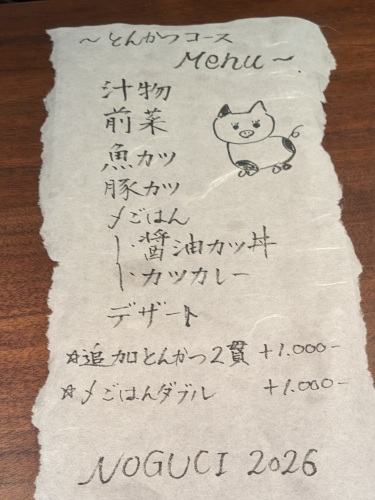 ～とんかつコース
Menu～
汁物
前菜
魚カツ
豚カツ
〆ごはん
├・醤油カツ丼
├・カツカレー
デザート
☆追加とんかつ2貫 +1.000-
☆〆ごはんダブル +1.000-
NOGUCI 2026